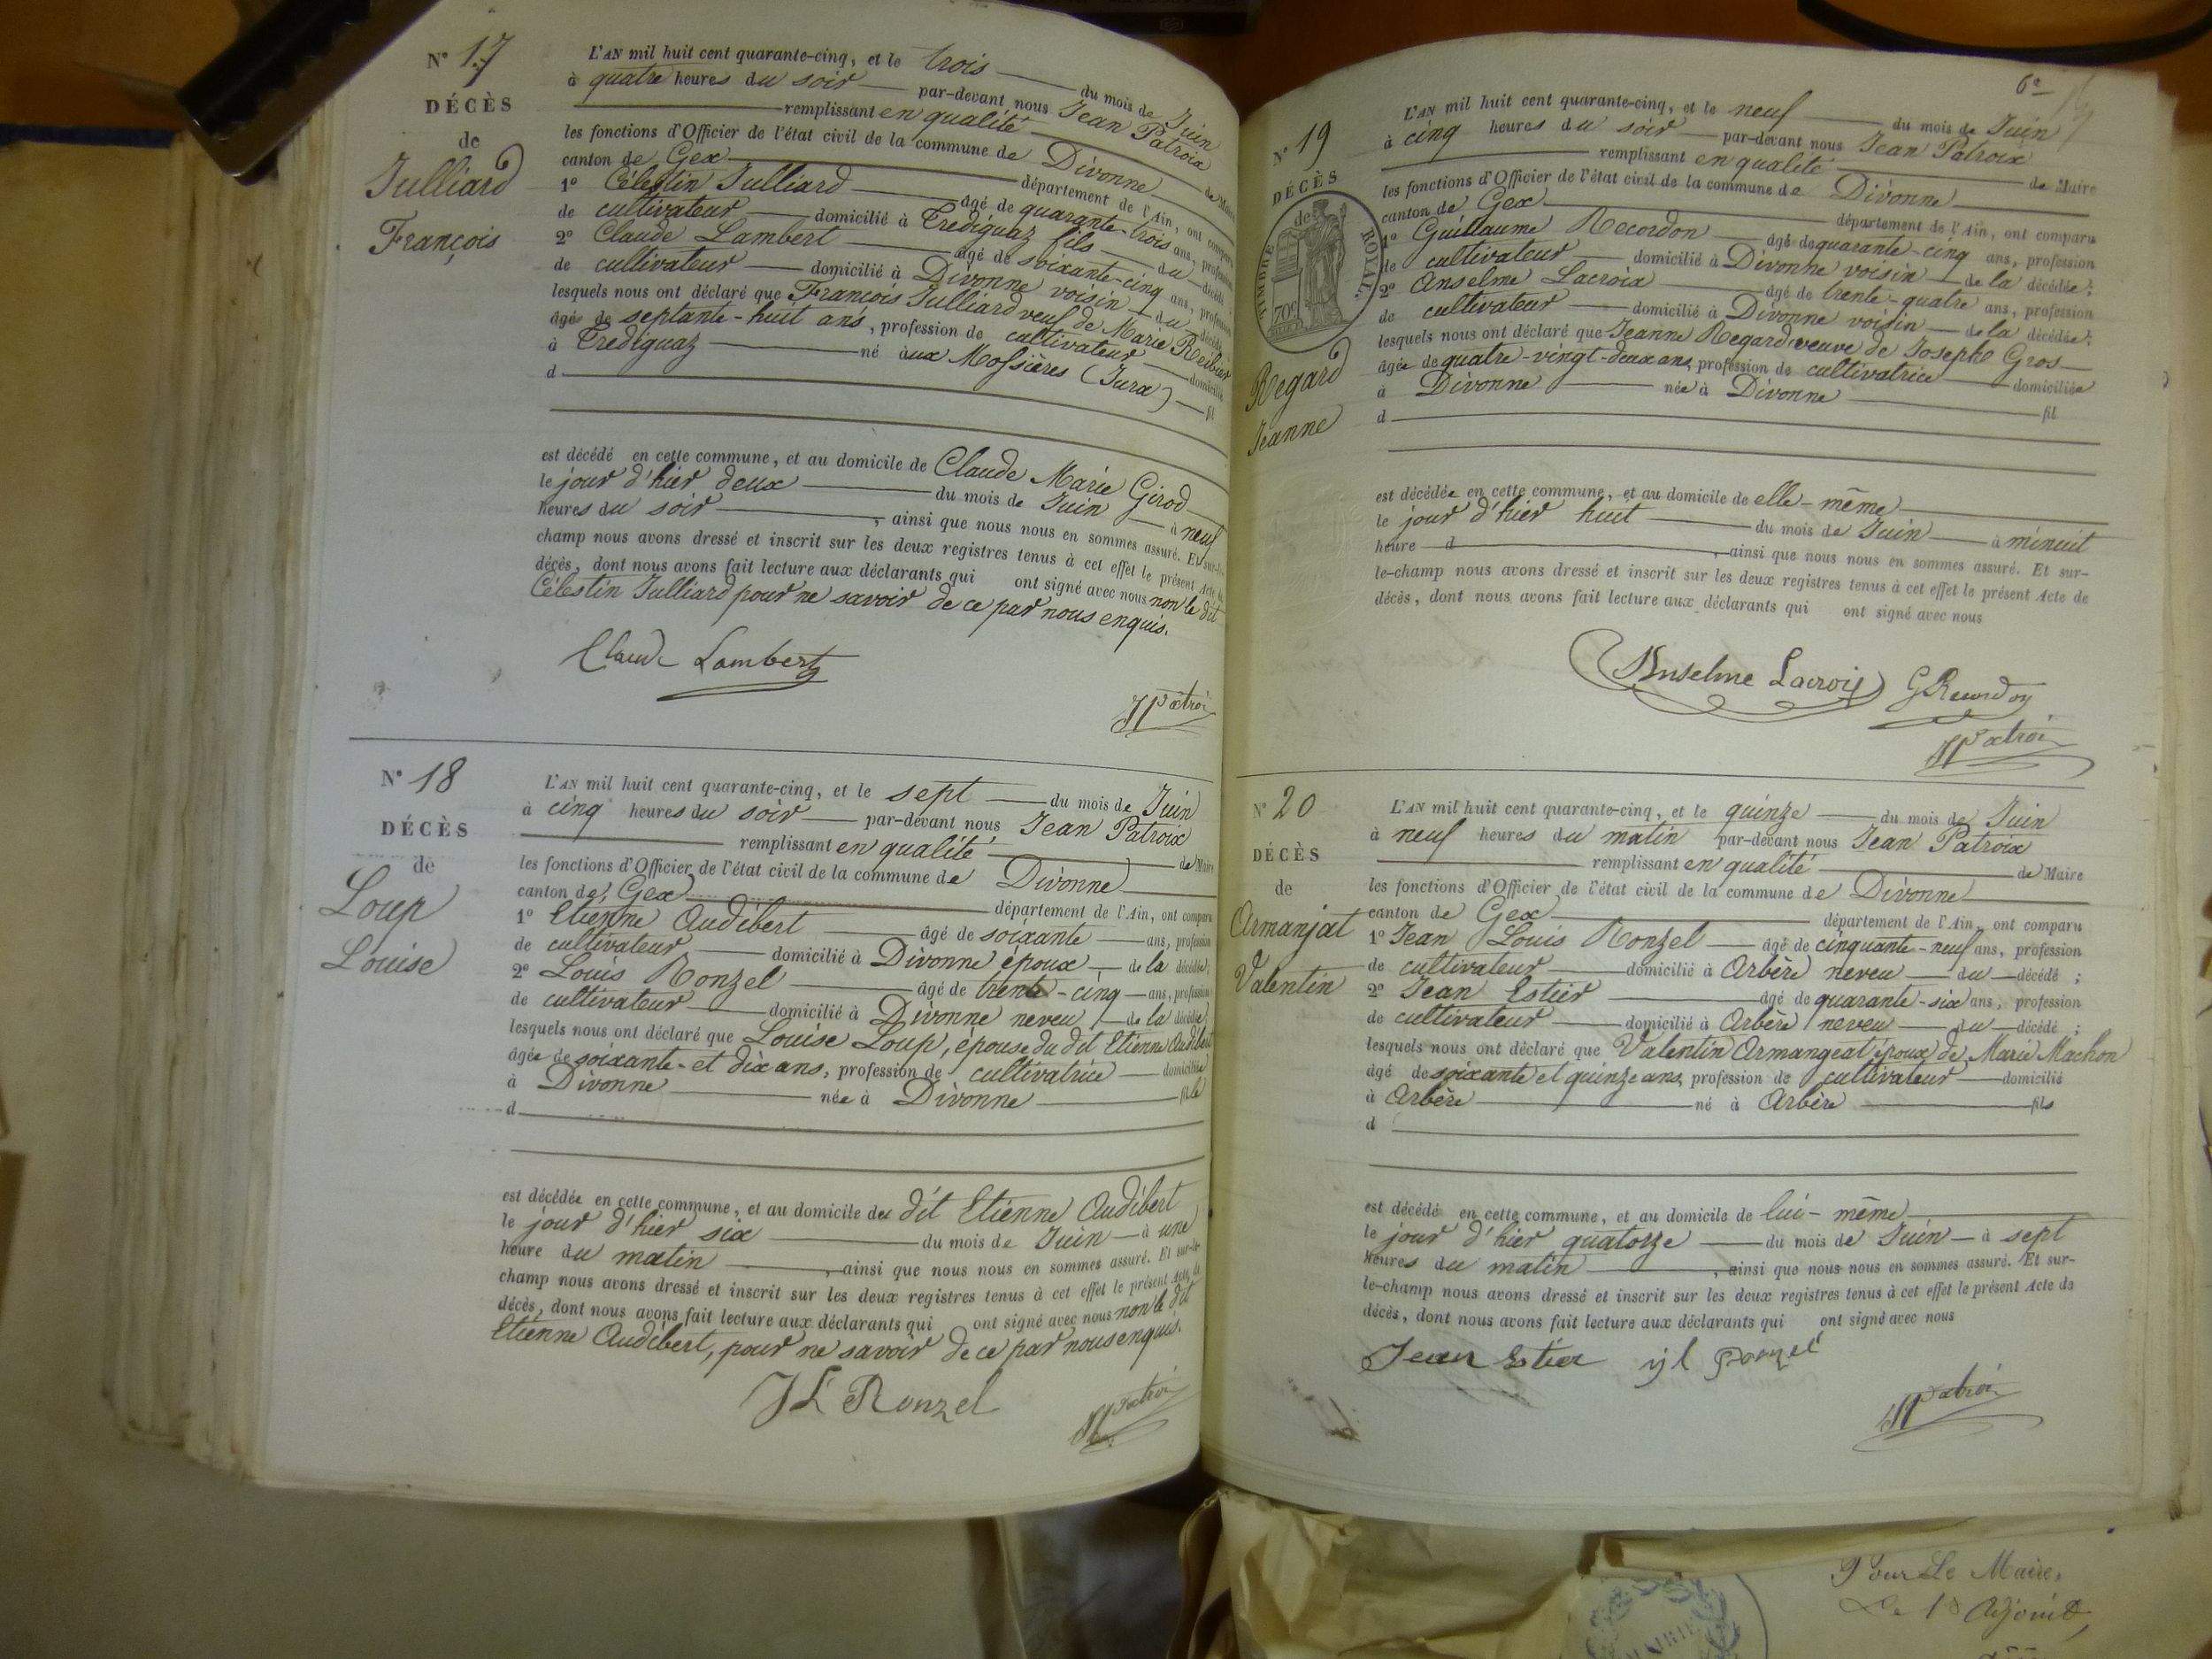 N° 17
DÉCÈS
de
Julliard
François
L'AN mil huit cent quarante-cinq, et le trois du mois de Juin
à quatre heures du soir par-devant nous Jean Patroix
remplissant en qualité de Maire
les fonctions d'Officier de l'état civil de la commune de Divonne
canton de Gex département de l'Ain, ont comparu
1° Célestin Julliard âgé de quarante-trois ans, profession
de cultivateur domicilié à Trediguaz fils du décédé
2° Claude Lambert âgé de soixante-cinq ans, profession
de cultivateur domicilié à Divonne voisin du décédé
lesquels nous ont déclaré que François Julliard veuf de Marie Reibier
âgé de septante-huit ans, profession de cultivateur domicilié
à Trediguaz né aux Mossières (Jura) fil
d
est décédé en cette commune, et au domicile de Claude Marie Girod
le jour d'hier deux du mois de Juin à neuf
heures du soir, ainsi que nous nous en sommes assuré. Et sur-le-
champ nous avons dressé et inscrit sur les deux registres tenus à cet effet le présent Acte de
décès, dont nous avons fait lecture aux déclarants qui ont signé avec nous non le dit
Célestin Julliard pour ne savoir de ce par nous enquis.
Claude Lambert
N° 18
DÉCÈS
de
Loup
Louise
L'AN mil huit cent quarante-cinq, et le sept du mois de Juin
à cinq heures du soir par-devant nous Jean Patroix
remplissant en qualité de Maire
les fonctions d'Officier de l'état civil de la commune de Divonne
canton de Gex département de l'Ain, ont comparu
1° Etienne Audibert âgé de soixante ans, profession
de cultivateur domicilié à Divonne époux de la décédée;
2° Louis Ronzel âgé de trente-cinq ans, profession
de cultivateur domicilié à Divonne neveu de la décédée;
lesquels nous ont déclaré que Louise Loup, épouse du dit Etienne Audibert
âgée de soixante-et dix ans, profession de cultivatrice domiciliée
à Divonne née à Divonne fille
d
est décédée en cette commune, et au domicile du dit Etienne Audibert
le jour d'hier six du mois de Juin à une
heure du matin, ainsi que nous nous en sommes assuré. Et sur-le-
champ nous avons dressé et inscrit sur les deux registres tenus à cet effet le présent Acte de
décès, dont nous avons fait lecture aux déclarants qui ont signé avec nous non le dit
Etienne Audibert, pour ne savoir de ce par nous enquis.
JL Ronzel
6e
N° 19
DÉCÈS
de
TIMBRE ROYAL
70c
Regard
Jeanne
L'AN mil huit cent quarante-cinq, et le neuf du mois de Juin
à cinq heures du soir par-devant nous Jean Patroix
remplissant en qualité de Maire
les fonctions d'Officier de l'état civil de la commune de Divonne
canton de Gex département de l'Ain, ont comparu
1° Guillaume Recordon âgé de quarante-cinq ans, profession
de cultivateur domicilié à Divonne voisin de la décédée;
2° Anselme Lacroix âgé de trente-quatre ans, profession
de cultivateur domicilié à Divonne voisin de la décédée;
lesquels nous ont déclaré que Jeanne Regard veuve de Joseph Gros
âgée de quatre-vingt-deux ans, profession de cultivatrice domiciliée
à Divonne née à Divonne fil
d
est décédée en cette commune, et au domicile de elle-même
le jour d'hier huit du mois de Juin à minuit
heure d, ainsi que nous nous en sommes assuré. Et sur-
le-champ nous avons dressé et inscrit sur les deux registres tenus à cet effet le présent Acte de
décès, dont nous avons fait lecture aux déclarants qui ont signé avec nous
Anselme Lacroix G Recordon
N° 20
DÉCÈS
de
Armanjat
Valentin
L'AN mil huit cent quarante-cinq, et le quinze du mois de Juin
à neuf heures du matin par-devant nous Jean Patroix
remplissant en qualité de Maire
les fonctions d'Officier de l'état civil de la commune de Divonne
canton de Gex département de l'Ain, ont comparu
1° Jean Louis Ronzel âgé de cinquante-neuf ans, profession
de cultivateur domicilié à Arbère neveu du décédé;
2° Jean Estier âgé de quarante-six ans, profession
de cultivateur domicilié à Arbère neveu du décédé;
lesquels nous ont déclaré que Valentin Armangeat époux de Marie Machon
âgé de soixante et quinze ans, profession de cultivateur domicilié
à Arbère né à Arbère fils
d
est décédé en cette commune, et au domicile de lui-même
le jour d'hier quatorze du mois de Juin à sept
heures du matin, ainsi que nous nous en sommes assuré. Et sur-
le-champ nous avons dressé et inscrit sur les deux registres tenus à cet effet le présent Acte de
décès, dont nous avons fait lecture aux déclarants qui ont signé avec nous
Jean Estier
Pour Le Maire,
Le 1er Adjoint,